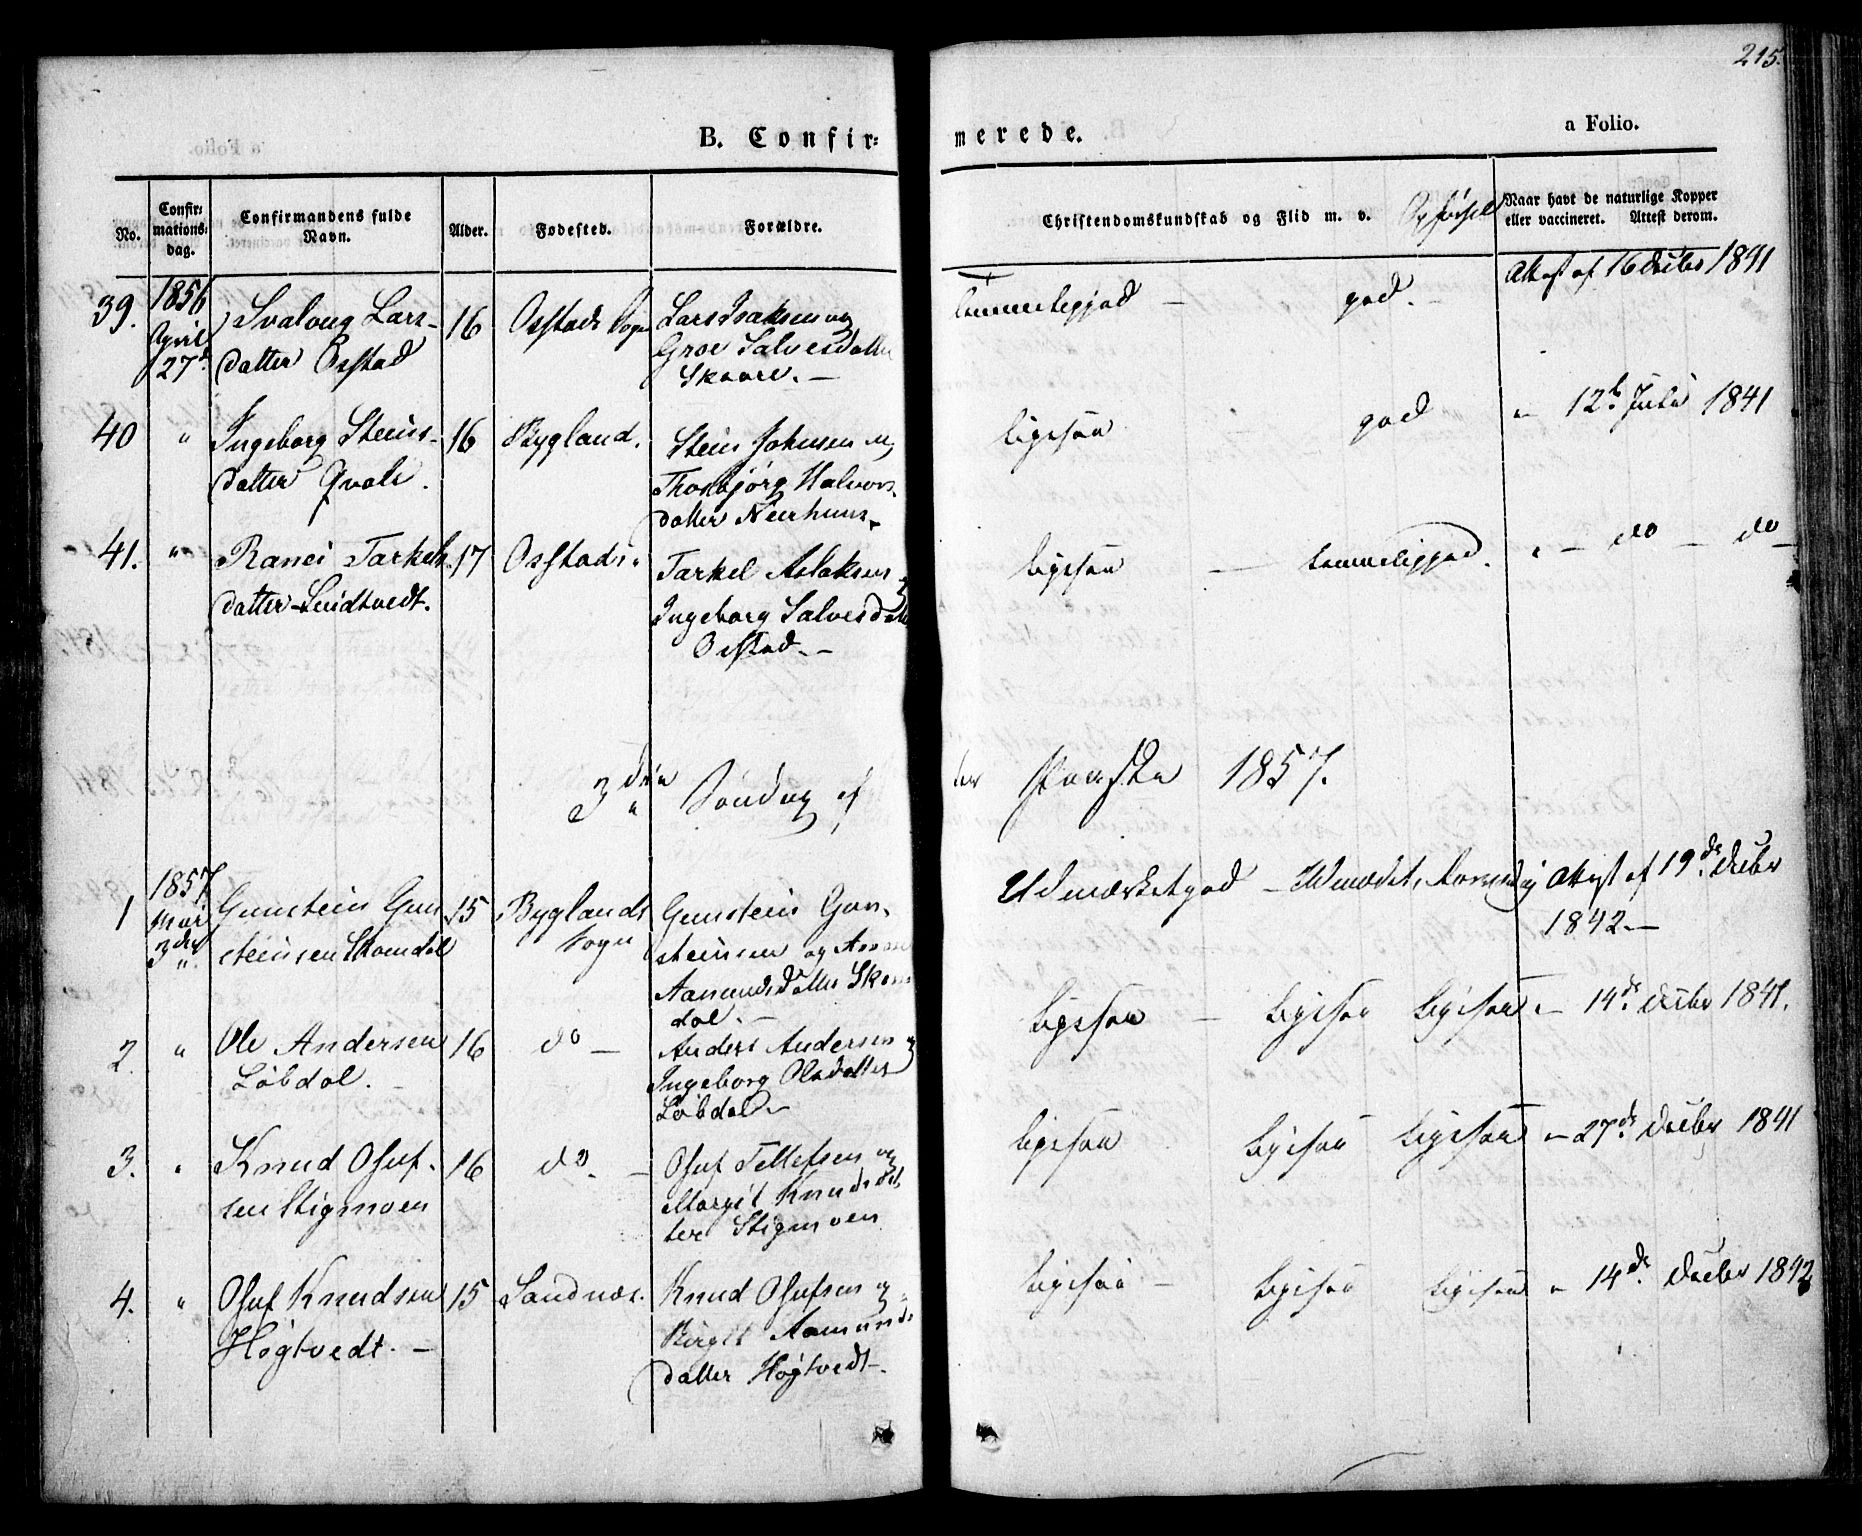 215.
B. Confir=
merede.
a Folio.
No.
Confir=
mations=
dag.
Confirmandens fulde
Navn.
Alder.
Fødested.
Forældre.
Christendomskundskab og Flid m. v.
Opførsel
Naar havt de naturlige Kopper
eller vaccineret. Attest derom.
39.
1856
April
27d.
Svaloug Lars-
datter Ostad
16
Lars Isaksen og
Groe Salvesdatter
Skaare. —
temmeligod —
god. —
Attest af 16 Decbr 1841
40
"
Ingeborg Steins-
datter Qvale.
16
Bygland.
Stein Johnsen og
Thorbjørg Halvors-
datter
ligesaa
god
" 12te Juli 1841
41.
"
Ranei Tarkels-
datter
17
Tarkel Aslaksen og
Ingeborg Salvesdatter
Ostad. —
ligesaa —
temmeligod.
" — do — do —
3die Søndag ef
ter Paaske 1857.
1
1857
Mai
3die
Gunstein Gun
steinsen Skomdal
15
Byglands
Sogn
Gunstein Gun-
steinsen og
Aamundsdatter Skom
dal. —
Udmærketgod —
Attest af 19de Decbr
1842 —
2.
"
Ole Andersen
Løbdal. —
16
do —
Anders Andersen og
Ingeborg Olsdatter
Løbdal —
ligesaa —
ligesaa ligesaa
" 14de Decbr 1841.
3.
"
Knud Osuf-
sen Stigmoen
16
do. —
Osuf Tellefsen og
Margit Knudsdat
ter Stigmoen
ligesaa
ligesaa ligesaa
" 27de Decbr 1841
4.
"
Osuf Knudsen
Høgtvedt. —
15
Sandnæs.
Knud Osufsen og
Birgit Aamunds
datter Høgtvedt —
ligesaa —
ligesaa ligesaa
" 14de Decbr 1842